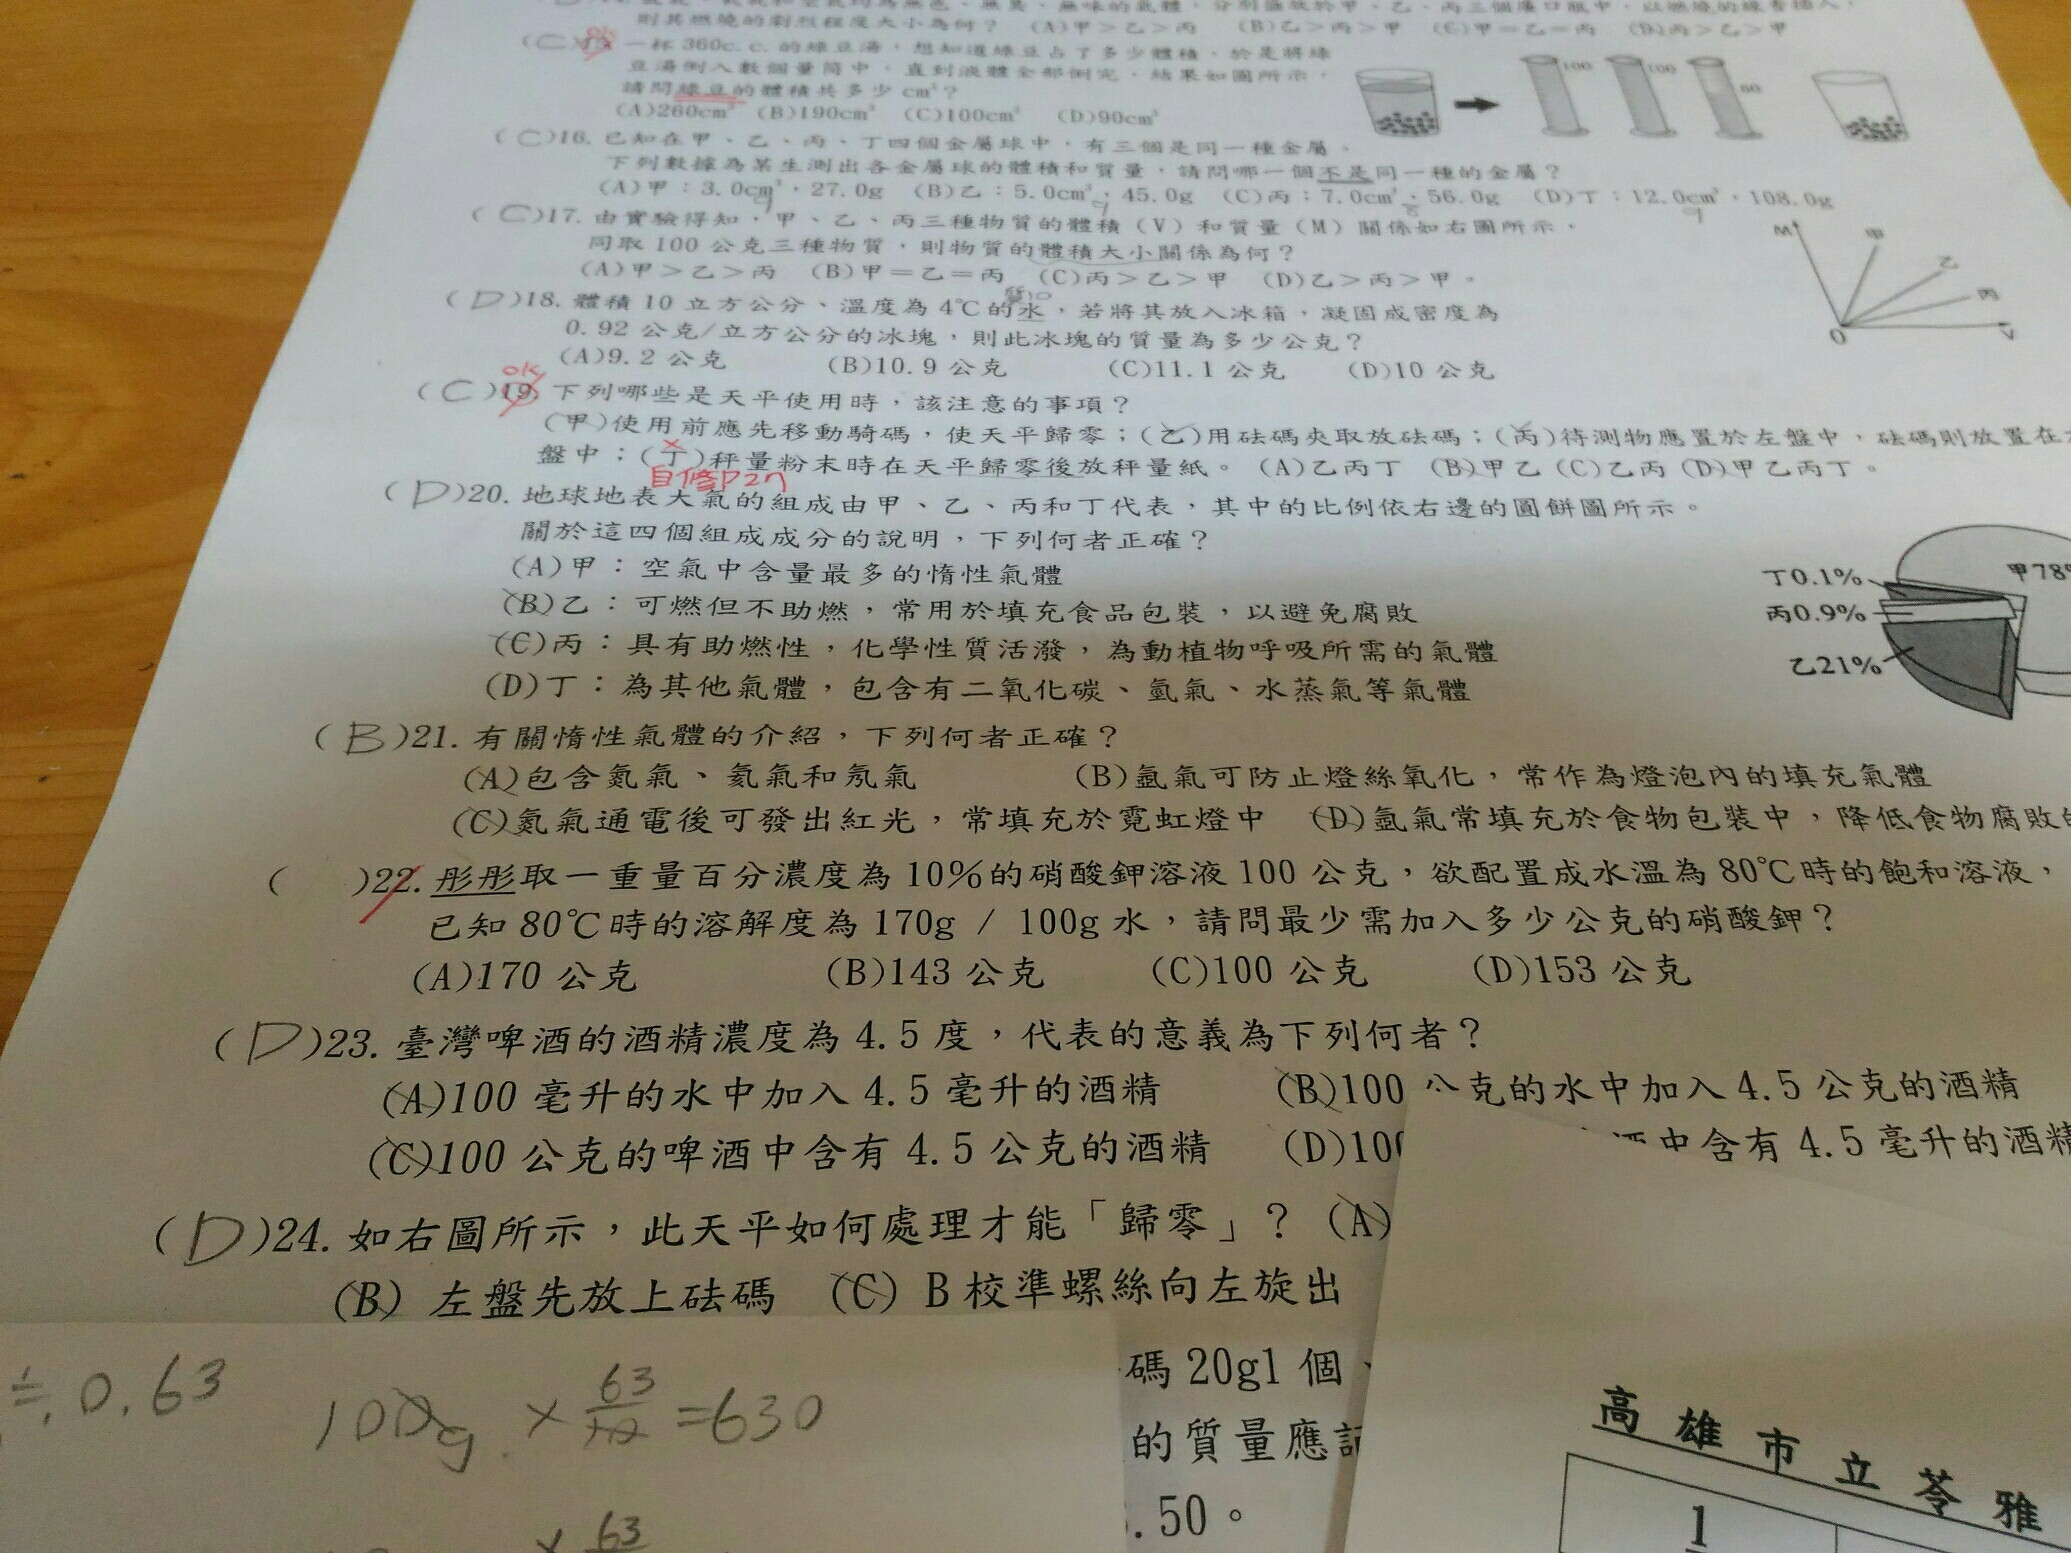 則其燃燒的劇烈程度大小為何？ (A)甲＞乙＞丙 (B)乙＞丙＞甲 (C)甲＝乙＝丙 (D)丙＞乙＞甲
(C)15. 一杯360c.c.的綠豆湯，想知道綠豆占了多少體積，於是將綠
ok
豆湯倒入數個量筒中，直到液體全部倒完，結果如圖所示，
請問綠豆的體積共多少cm³？
(A)260cm³ (B)190cm³ (C)100cm³ (D)90cm³
100 100 60
(C)16. 已知在甲、乙、丙、丁四個金屬球中，有三個是同一種金屬。
下列數據為某生測出各金屬球的體積和質量，請問哪一個不是同一種的金屬？
(A)甲：3.0cm³，27.0g (B)乙：5.0cm³，45.0g (C)丙：7.0cm³，56.0g (D)丁：12.0cm³，108.0g
9 9 8 9
(C)17. 由實驗得知，甲、乙、丙三種物質的體積（V）和質量（M）關係如右圖所示，
同取100公克三種物質，則物質的體積大小關係為何？
(A)甲＞乙＞丙 (B)甲＝乙＝丙 (C)丙＞乙＞甲 (D)乙＞丙＞甲。
M 甲 乙 丙 0 V
質10
(D)18. 體積10立方公分、溫度為4℃的水，若將其放入冰箱，凝固成密度為
0.92公克/立方公分的冰塊，則此冰塊的質量為多少公克？
(A)9.2公克 (B)10.9公克 (C)11.1公克 (D)10公克
ok
(C)19. 下列哪些是天平使用時，該注意的事項？
(甲)使用前應先移動騎碼，使天平歸零；(乙)用砝碼夾取放砝碼；(丙)待測物應置於左盤中，砝碼則放置在
盤中；(丁)秤量粉末時在天平歸零後放秤量紙。 (A)乙丙丁 (B)甲乙 (C)乙丙 (D)甲乙丙丁。
自修P27
(D)20. 地球地表大氣的組成由甲、乙、丙和丁代表，其中的比例依右邊的圓餅圖所示。
關於這四個組成成分的說明，下列何者正確？
(A)甲：空氣中含量最多的惰性氣體
(B)乙：可燃但不助燃，常用於填充食品包裝，以避免腐敗
(C)丙：具有助燃性，化學性質活潑，為動植物呼吸所需的氣體
(D)丁：為其他氣體，包含有二氧化碳、氫氣、水蒸氣等氣體
丁0.1%
甲78%
丙0.9%
乙21%
(B)21. 有關惰性氣體的介紹，下列何者正確？
(A)包含氮氣、氦氣和氖氣 (B)氬氣可防止燈絲氧化，常作為燈泡內的填充氣體
(C)氮氣通電後可發出紅光，常填充於霓虹燈中 (D)氬氣常填充於食物包裝中，降低食物腐敗的
( )22. 彤彤取一重量百分濃度為10%的硝酸鉀溶液100公克，欲配置成水溫為80℃時的飽和溶液，
已知80℃時的溶解度為170g / 100g水，請問最少需加入多少公克的硝酸鉀？
(A)170公克 (B)143公克 (C)100公克 (D)153公克
(D)23. 臺灣啤酒的酒精濃度為4.5度，代表的意義為下列何者？
(A)100毫升的水中加入4.5毫升的酒精 (B)100公克的水中加入4.5公克的酒精
(C)100公克的啤酒中含有4.5公克的酒精 (D)100 酒中含有4.5毫升的酒精
(D)24. 如右圖所示，此天平如何處理才能「歸零」？ (A)
(B) 左盤先放上砝碼 (C) B校準螺絲向左旋出
碼20g1個、
的質量應記
.50。
÷.0.63 100g × 63/10 =630
× 63
高雄市立苓雅
1